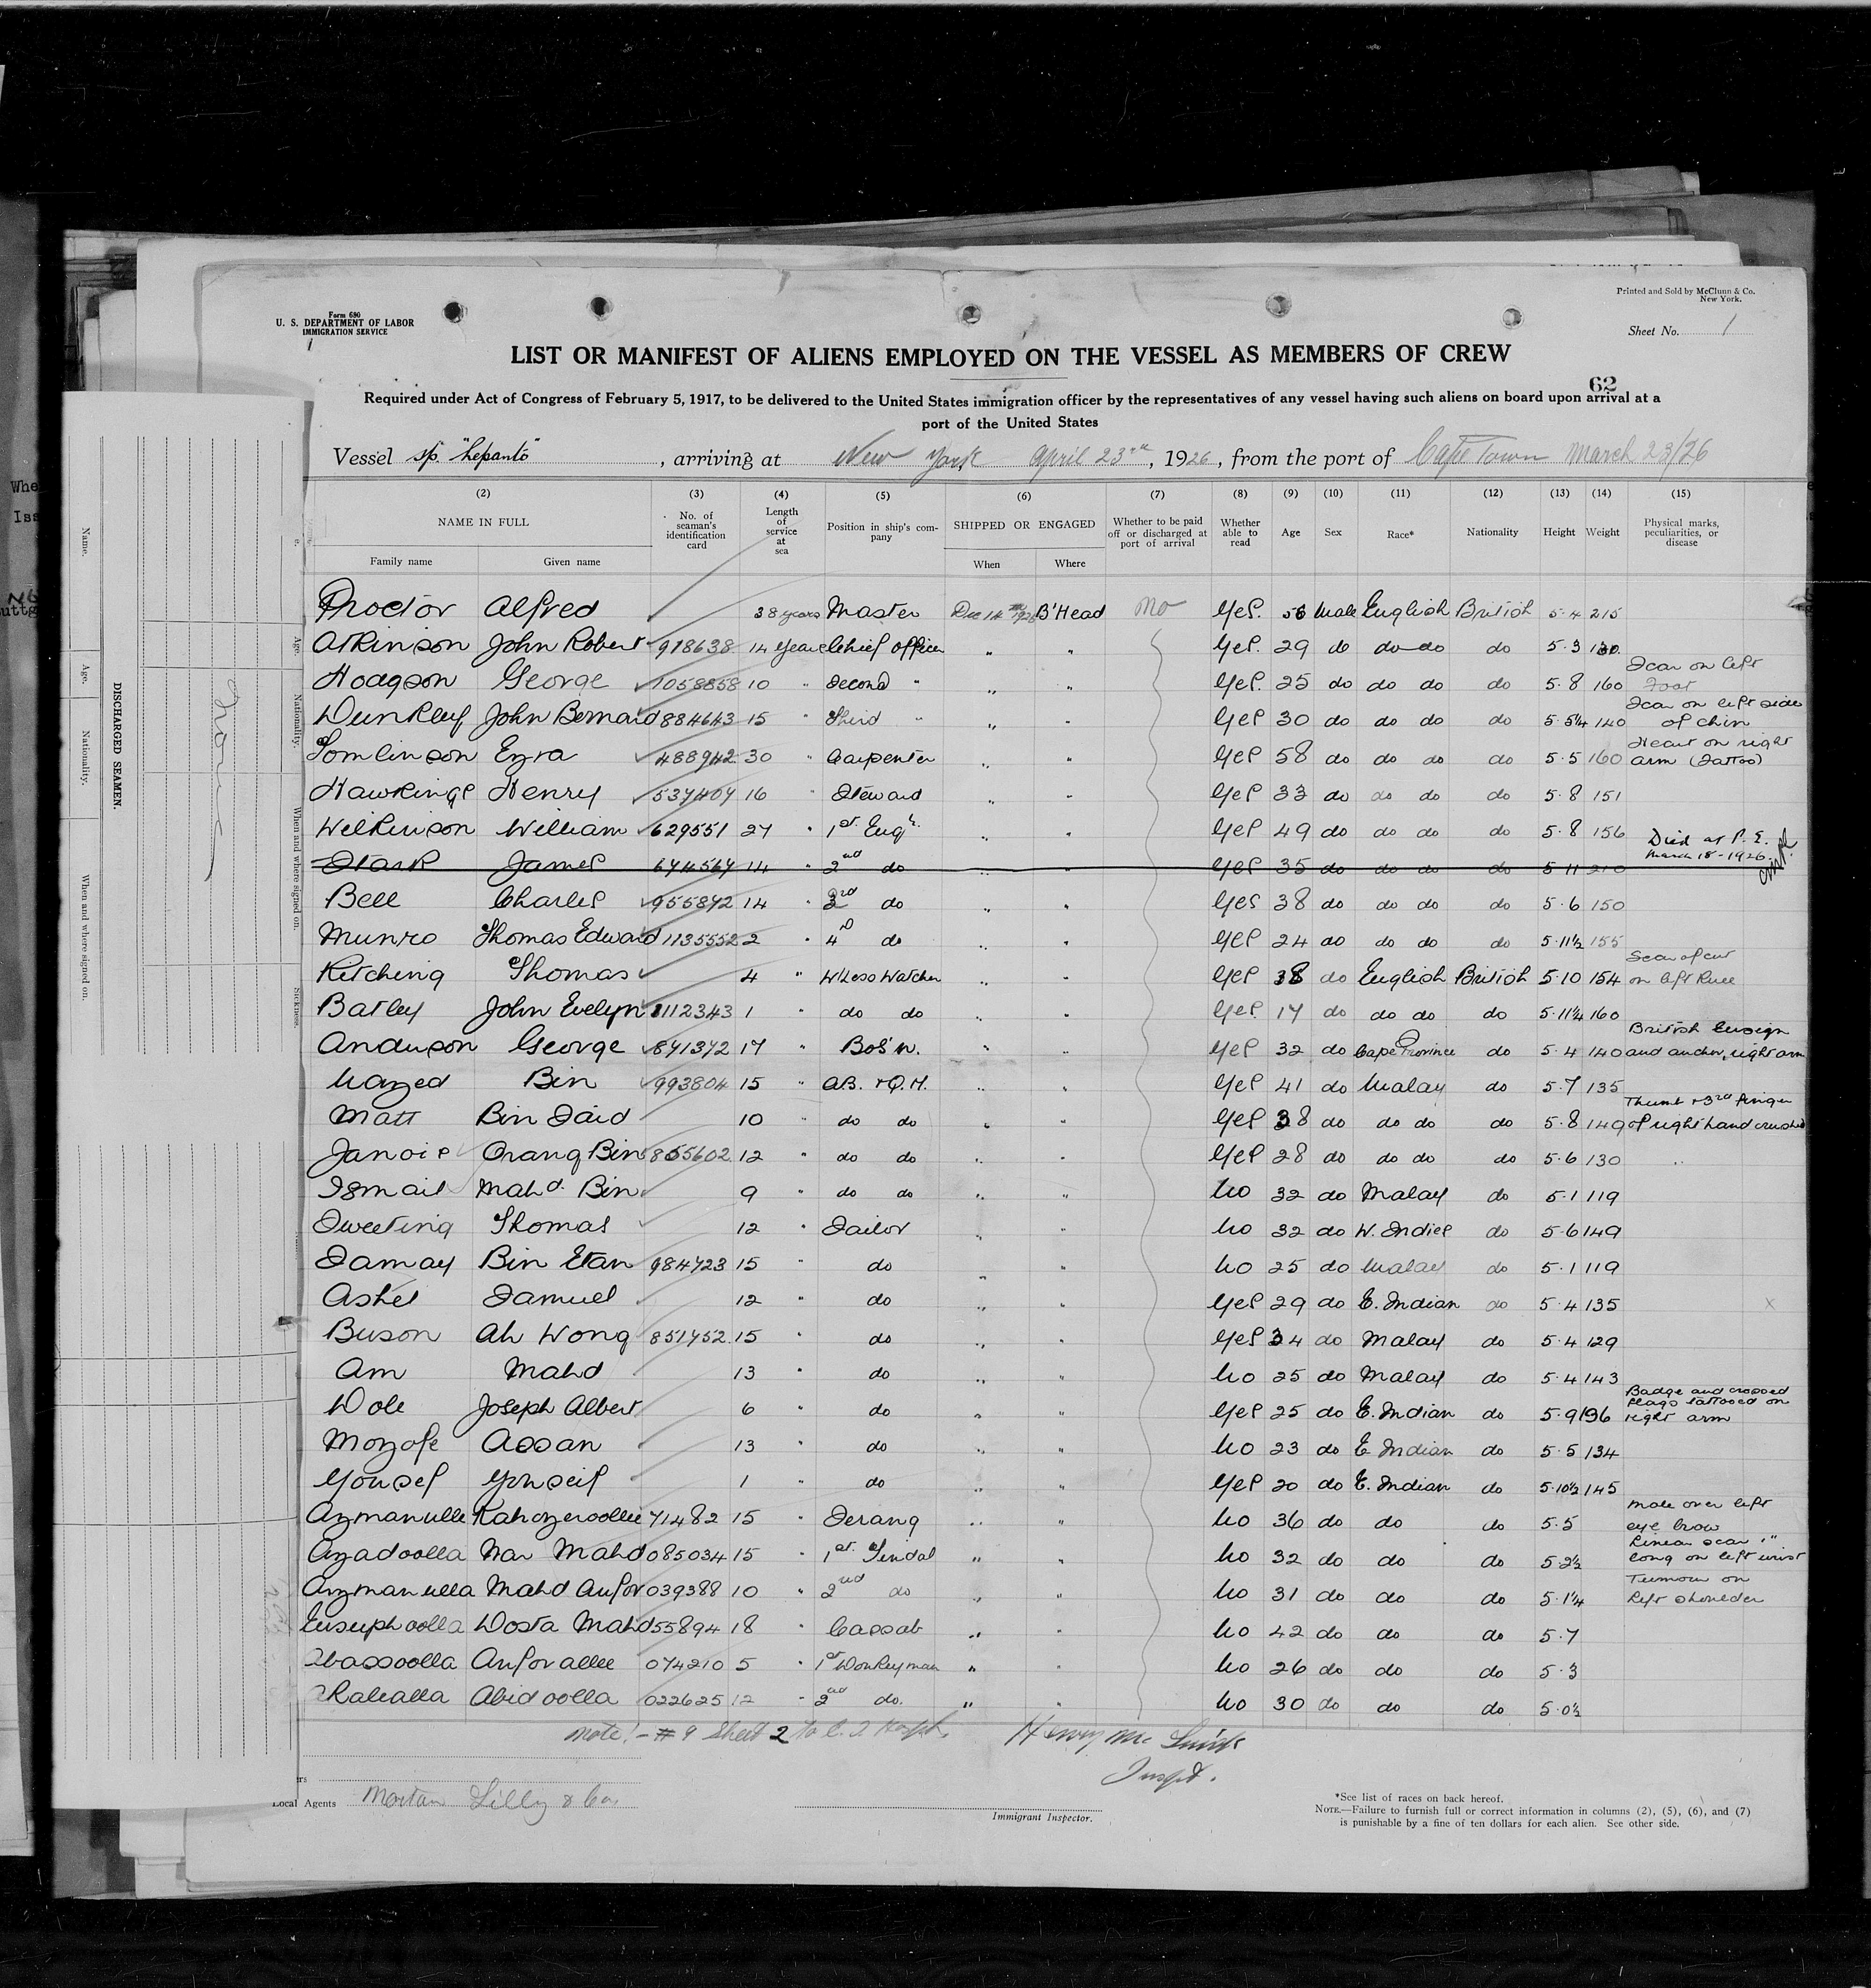 Form 680
U. S. DEPARTMENT OF LABOR
IMMIGRATION SERVICE
1
Printed and Sold by McClunn & Co.
New York.
Sheet No. 1
LIST OR MANIFEST OF ALIENS EMPLOYED ON THE VESSEL AS MEMBERS OF CREW
62
Required under Act of Congress of February 5, 1917, to be delivered to the United States immigration officer by the representatives of any vessel having such aliens on board upon arrival at a
port of the United States
Vessel "Lepanto", arriving at New York April 23rd, 1926, from the port of Cape Town March 23/26
(2) (3) (4) (5) (6) (7) (8) (9) (10) (11) (12) (13) (14) (15)
NAME IN FULL No. of seaman's identification card Length of service at sea Position in ship's company SHIPPED OR ENGAGED Whether to be paid off or discharged at port of arrival Whether able to read Age Sex Race* Nationality Height Weight Physical marks, peculiarities, or disease
Family name Given name When Where
Proctor Alfred 38 years Master B'Head No Yes. 56 Male English British 5·4 215
Atkinson John Robert 918638 14 years Chief Officer " " Yes. 29 do do do do 5·3 130
Hodgson George 1058858 10 " Second " " " Yes. 25 do do do do 5·8 160 Scar on left Foot
Dunkley John Bernard 884643 15 " Third " " " Yes 30 do do do do 5·5¼ 140 Scar on left side of chin
Tomlinson Ezra 488942 30 " Carpenter " " Yes 58 do do do do 5·5 160 Heart on right arm (Tattoo)
Hawkings Henry 537407 16 " Steward " " Yes 33 do do do do 5·8 151
Wilkinson William 629551 27 " 1st Engr. " " Yes 49 do do do do 5·8 156
Stark James 674567 14 " 2nd do " " Yes 35 do do do do 5·11 210 Died at P. E. March 18-1926.
Bell Charles 955872 14 " 3rd do " " Yes 38 do do do do 5·6 150
Munro Thomas Edward 1135552 2 " 4 do " " Yes 24 do do do do 5·11½ 155
Kitching Thomas 4 " W'less Watcher " " Yes 38 do English British 5·10 154 Scar of cut on left knee
Batley John Evelyn 1112343 1 " do do " " Yes. 17 do do do do 5·11¼ 160
Anderson George 841372 17 " Bos'n. " " Yes 32 do Cape Province do 5·4 140 British Ensign and anchor, right arm
Mazed Bin 993804 15 " AB. + Q.M. " " Yes 41 do Malay do 5·7 135
Matt Bin Said 10 " do do " " Yes 38 do do do do 5·8 149 Thumb + 3rd finger of right hand crushed
Janois Orang Bin 12 " do do " " Yes 28 do do do do 5·6 130 "
Ismail Mahd. Bin 9 " do do " " No 32 do Malay do 5·1 119
Sweeting Thomas 12 " Sailor " " No 32 do W. Indies do 5·6 149
Samay Bin Etan 984723 15 " do " " No 25 do Malay do 5·1 119
Ashel Samuel 12 " do " " Yes 29 do E. Indian do 5·4 135 x
Buson Ah Wong 851752 15 " do " " Yes 34 do Malay do 5·4 129
Am Mahd 13 " do " " No 25 do Malay do 5·4 143
Dole Joseph Albert 6 " do " " Yes 25 do E. Indian do 5·9 136 Badge and crossed flags tattooed on right arm
Mozafe Assan 13 " do " " No 23 do E. Indian do 5·5 134
Yousef Youseif 1 " do " " Yes 20 do E. Indian do 5·10½ 145
Azmanulle Kahozeroollee 71482 15 " Serang " " No 36 do do do 5·5 mole over left eye brow
Azadoolla Nar Mahd 085034 15 " 1st Tindal " " No 32 do do do 5·2½ Linear scar 1" long on left wrist
Azmanulla Mahd Aufor 039388 10 " 2nd do " " No 31 do do do 5·1¼ Tumour on left shoulder
Eusuphoolla Dosta Mahd 55894 18 " Cassab " " No 42 do do do 5·7
Abassoolla Auforallee 074210 5 " 1st Donkeyman " " No 26 do do do 5·3
Abidoolla 022625 12 " 2nd do. " " No 30 do do do 5·0½
Note! - # 9 Sheet 2 to
Henry Mc
Inspt.
Local Agents Lilly & Co.
Immigrant Inspector.
*See list of races on back hereof.
NOTE.—Failure to furnish full or correct information in columns (2), (5), (6), and (7)
is punishable by a fine of ten dollars for each alien. See other side.
DISCHARGED SEAMEN.
Name.
Age.
Nationality.
When and where signed on.
Age.
Nationality.
When and where signed on.
Sickness.
None